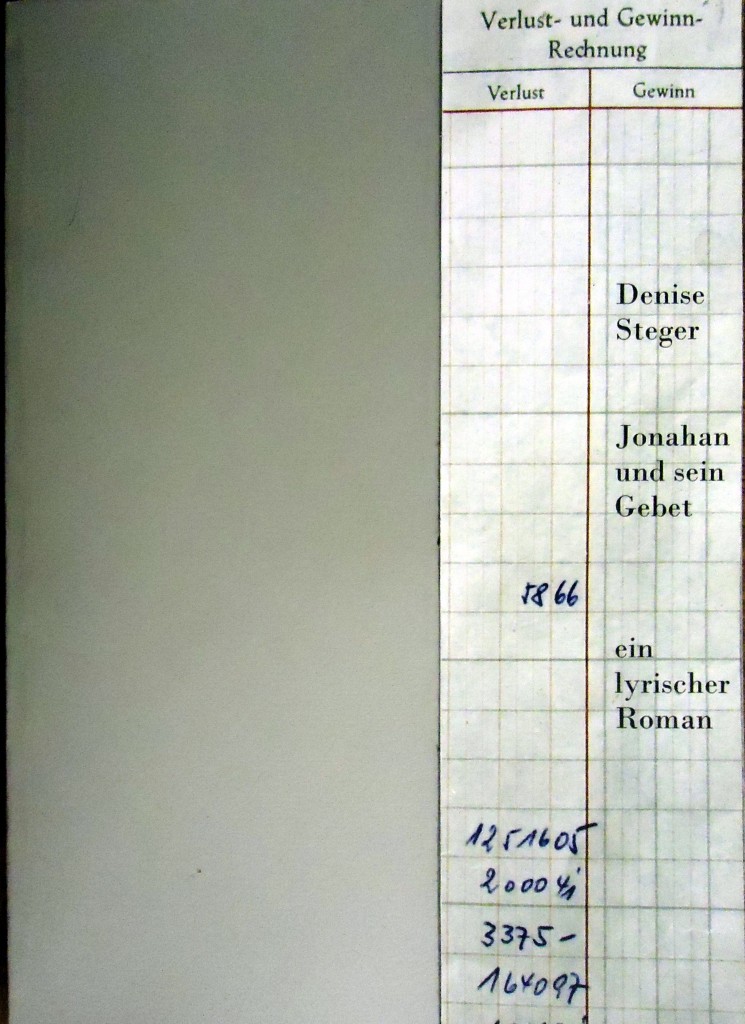 Verlust- und Gewinn-
Rechnung
Verlust Gewinn
Denise
Steger
Jonahan
und sein
Gebet
5866
ein
lyrischer
Roman
1251605
3375-
164097